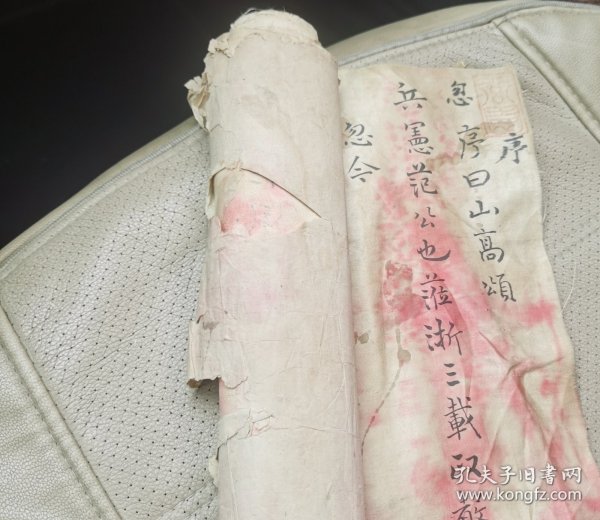 序
忽 序曰山高頌
兵憲范公也蒞浙三載
忽今
孔夫子旧书网
www.kongfz.com